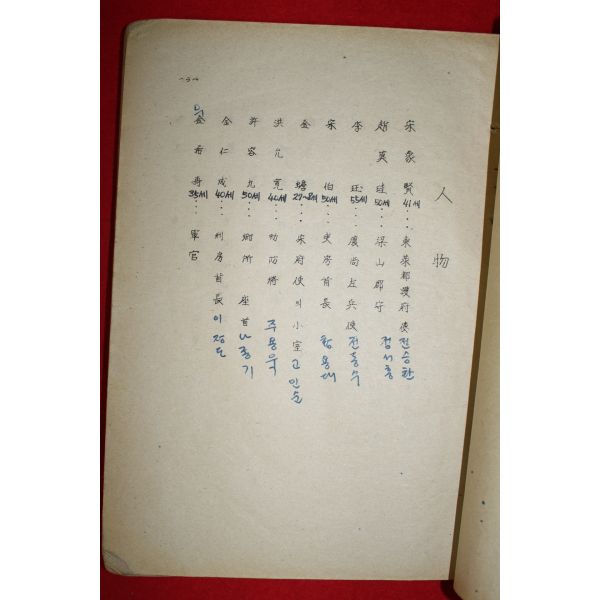 人物
宋象賢 41세 ··· 東萊都護府使 전승환
趙英珪 50세 ··· 梁山郡守 정서홍
李珏 55세 ··· 慶尙左兵使 전흥수
宋伯 50세 ··· 吏房首長 황용대
金蟾 27~8세 ··· 宋府使의 小室 고인순
洪允寬 40세 ··· 助防將 주용욱
許容允 50세 ··· 鄕所 座首 나종기
金仁成 40세 ··· 刑房首長 이정도
金希壽 35세 ··· 軍官